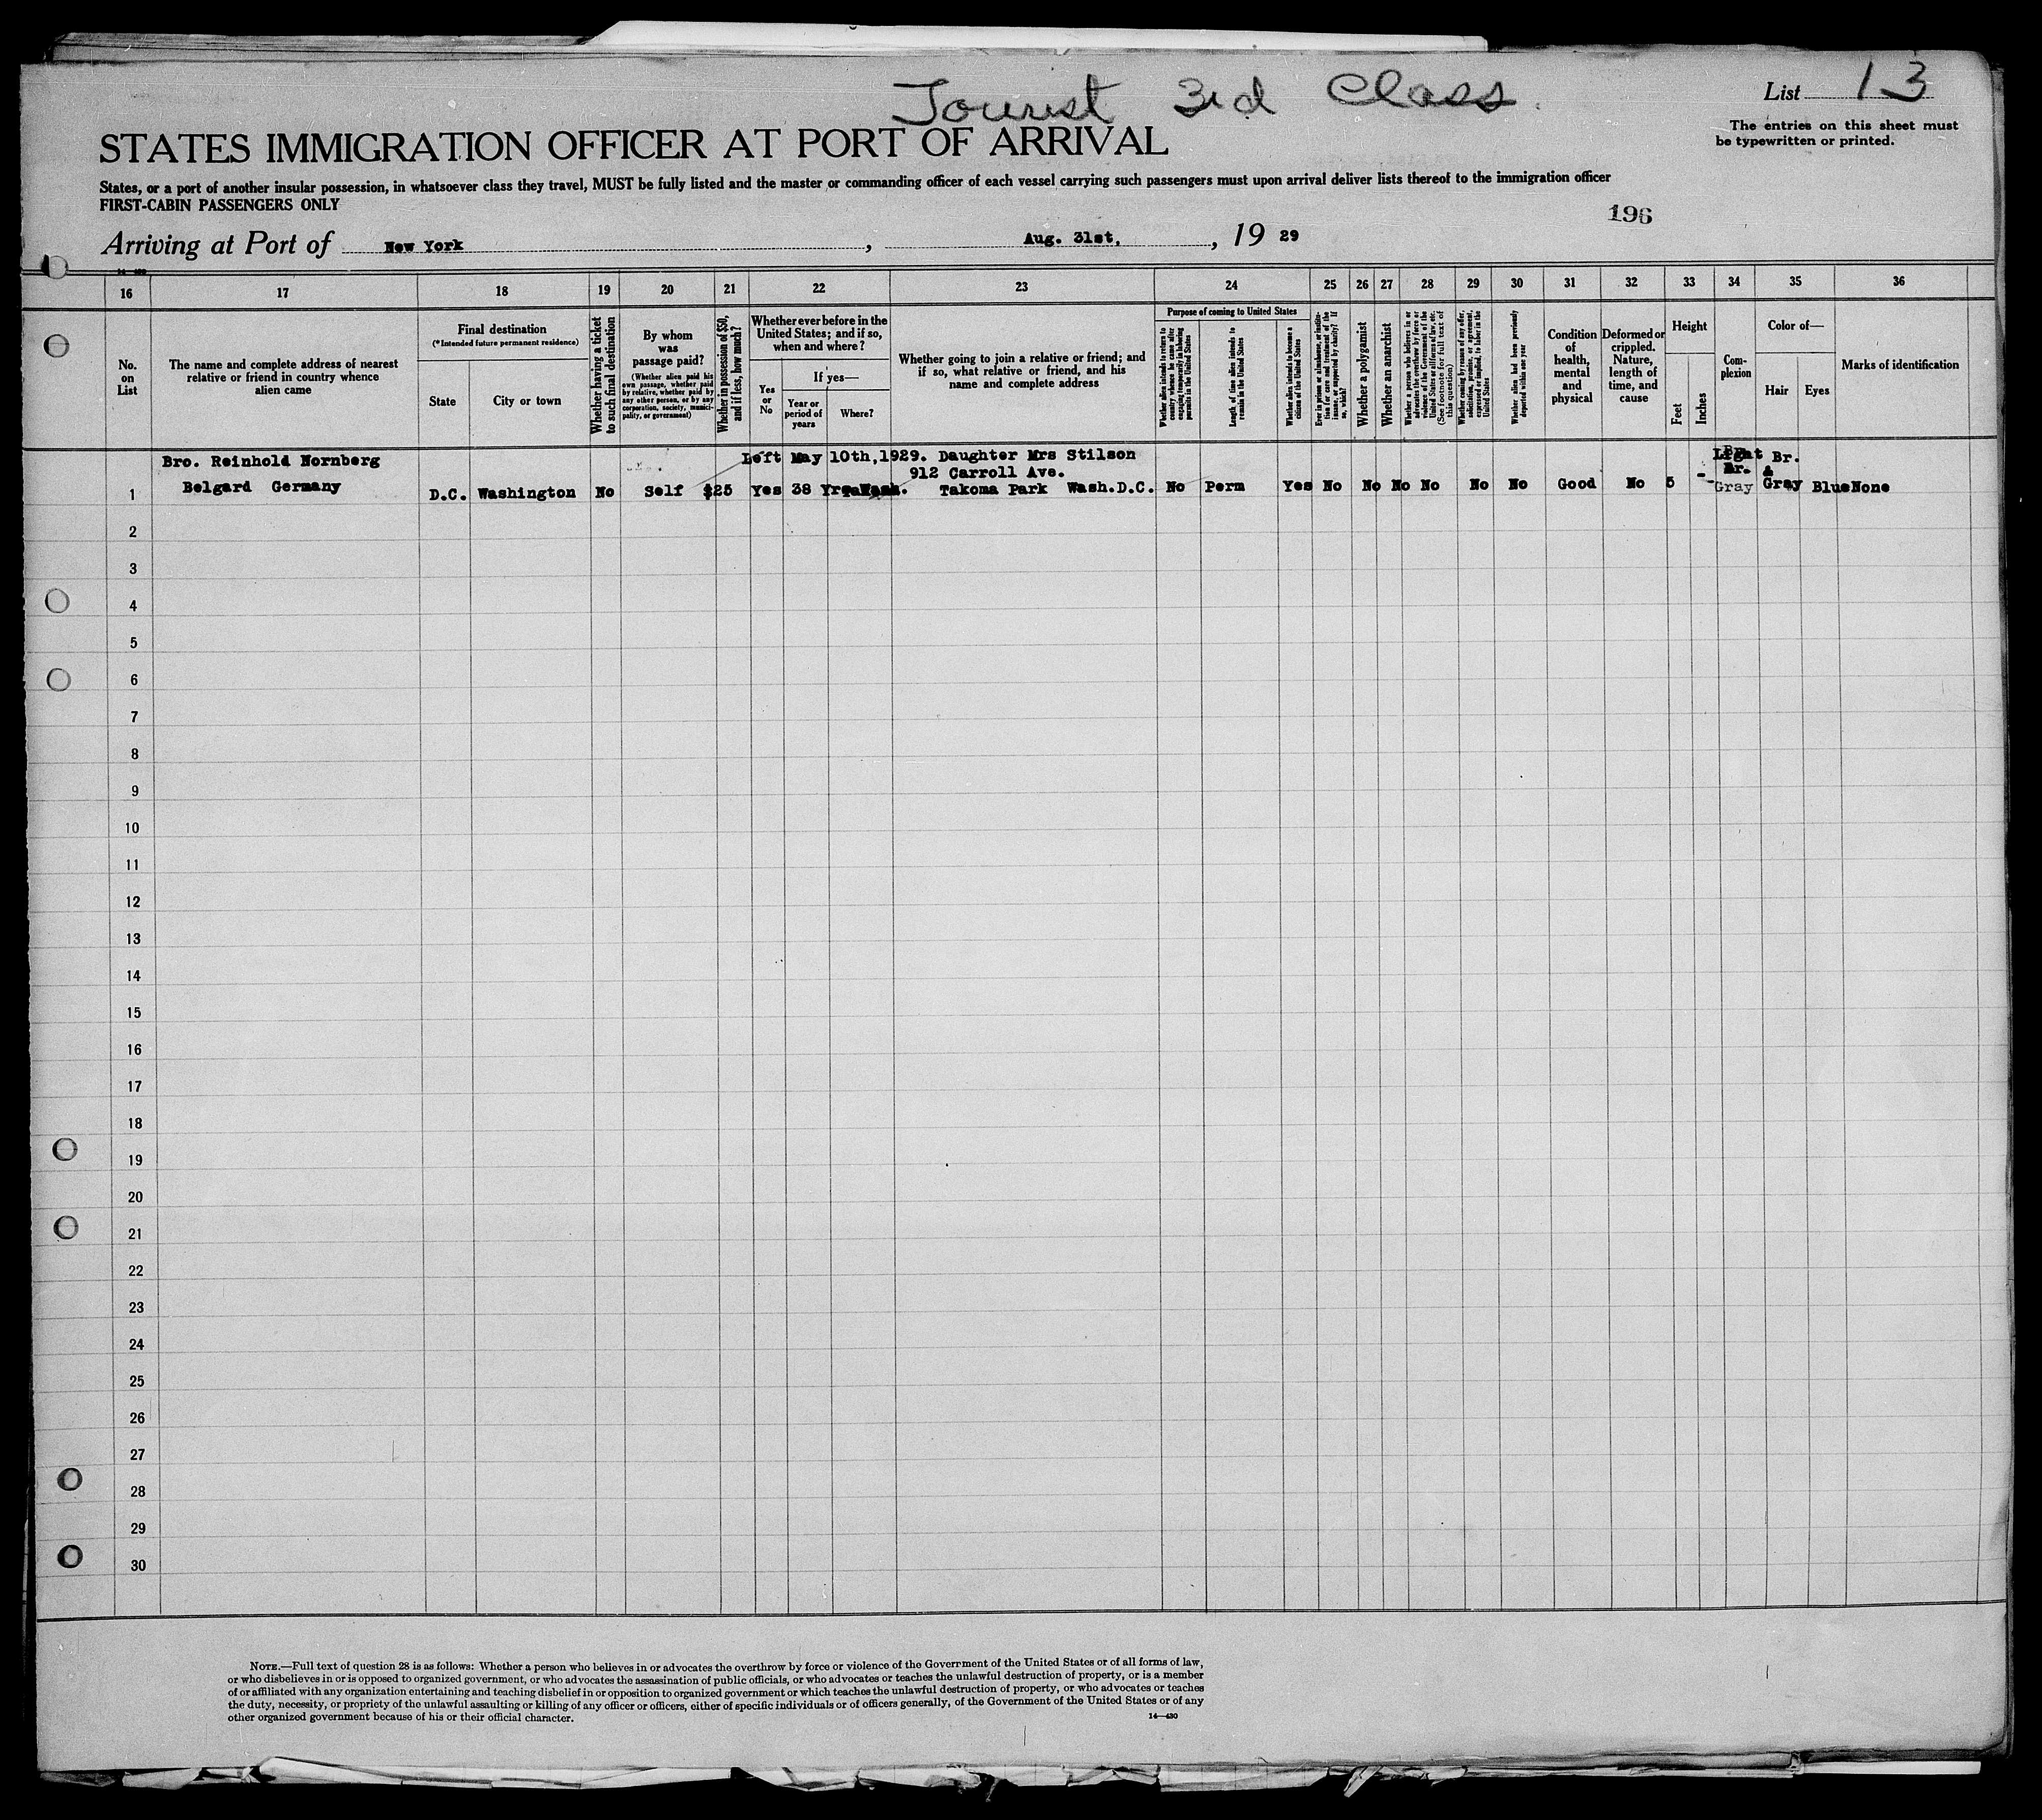 Tourist 3rd Class
List 13
The entries on this sheet must
be typewritten or printed.
STATES IMMIGRATION OFFICER AT PORT OF ARRIVAL
States, or a port of another insular possession, in whatsoever class they travel, MUST be fully listed and the master or commanding officer of each vessel carrying such passengers must upon arrival deliver lists thereof to the immigration officer
FIRST-CABIN PASSENGERS ONLY
196
Arriving at Port of New York, Aug. 31st, , 19 29
16 17 18 19 20 21 22 23 24 25 26 27 28 29 30 31 32 33 34 35 36
No.
on
List
The name and complete address of nearest
relative or friend in country whence
alien came
Final destination
(*Intended future permanent residence)
State
City or town
Whether having a ticket
to such final destination
By whom
was
passage paid?
(Whether alien paid his
own passage, whether paid
by relative, whether paid by
any other person, or by any
corporation, society, munici-
pality, or government)
Whether in possession of $50,
and if less, how much?
Whether ever before in the
United States; and if so,
when and where?
Yes
or
No
If yes—
Year or
period of
years
Where?
Whether going to join a relative or friend; and
if so, what relative or friend, and his
name and complete address
Purpose of coming to United States
Whether alien intends to return to
country whence he came after
engaging temporarily in laboring
pursuits in the United States
Length of time alien intends to
remain in the United States
Whether alien intends to become a
citizen of the United States
Ever in prison or almshouse, or institu-
tion for care and treatment of the
insane, or supported by charity? If
so, which?
Whether a polygamist
Whether an anarchist
Whether a person who believes in or
advocates the overthrow by force or
violence of the Government of the
United States or all forms of law, etc.
(See footnote for full text of
this question)
Whether coming by reason of any offer,
solicitation, promise, or agreement,
expressed or implied, to labor in the
United States
Whether alien had been previously
deported within one year
Condition
of
health,
mental
and
physical
Deformed or
crippled.
Nature,
length of
time, and
cause
Height
Feet
Inches
Com-
plexion
Color of—
Hair
Eyes
Marks of identification
Bro. Reinhold Nornberg Left May 10th,1929. Daughter Mrs Stilson Light Br.
912 Carroll Ave. Br. &
1 Belgard Germany D.C. Washington No Self $25 Yes 38 Yrs Takoma Park Wash.D.C. No Perm Yes No No No No No No Good No 5 - Gray Gray Blue None
2
3
4
5
6
7
8
9
10
11
12
13
14
15
16
17
18
19
20
21
22
23
24
25
26
27
28
29
30
NOTE.—Full text of question 28 is as follows: Whether a person who believes in or advocates the overthrow by force or violence of the Government of the United States or of all forms of law,
or who disbelieves in or is opposed to organized government, or who advocates the assassination of public officials, or who advocates or teaches the unlawful destruction of property, or is a member
of or affiliated with any organization entertaining and teaching disbelief in or opposition to organized government or which teaches the unlawful destruction of property, or who advocates or teaches
the duty, necessity, or propriety of the unlawful assaulting or killing of any officer or officers, either of specific individuals or of officers generally, of the Government of the United States or of any
other organized government because of his or their official character.
14—430